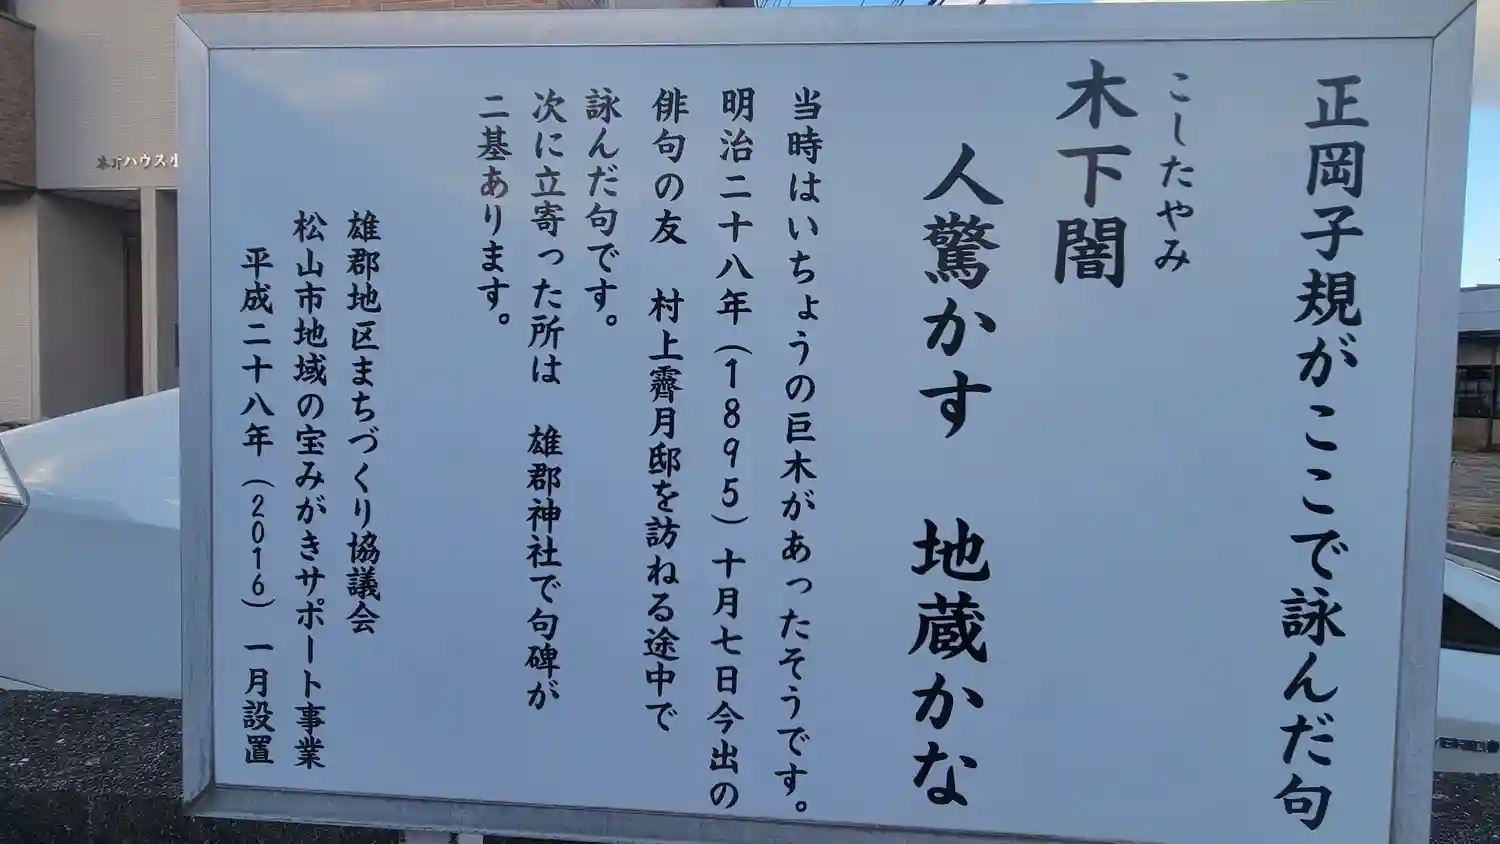 正岡子規がここで詠んだ句
こしたやみ
木下闇
人驚かす 地蔵かな
当時はいちょうの巨木があったそうです。
明治二十八年(1895)十月七日今出の
俳句の友 村上霽月邸を訪ねる途中で
詠んだ句です。
次に立寄った所は 雄郡神社で句碑が
二基あります。
雄郡地区まちづくり協議会
松山市地域の宝みがきサポート事業
平成二十八年(2016)一月設置
ハウス